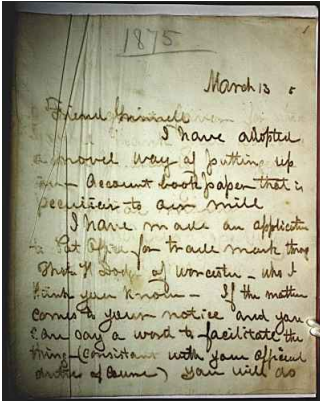 1875
March 13 5
Friend Grinnell
I have adopted
a novel way of putting up
our Account book paper that is
peculiar to our mill
I have made an application
to Pat Office for trade mark thro
Thos H Dodge of Worcester - who I
think you know - If the matter
comes to your notice and you
can say a word to facilitate the
thing (Consistant with your official
duties of Course) you will do